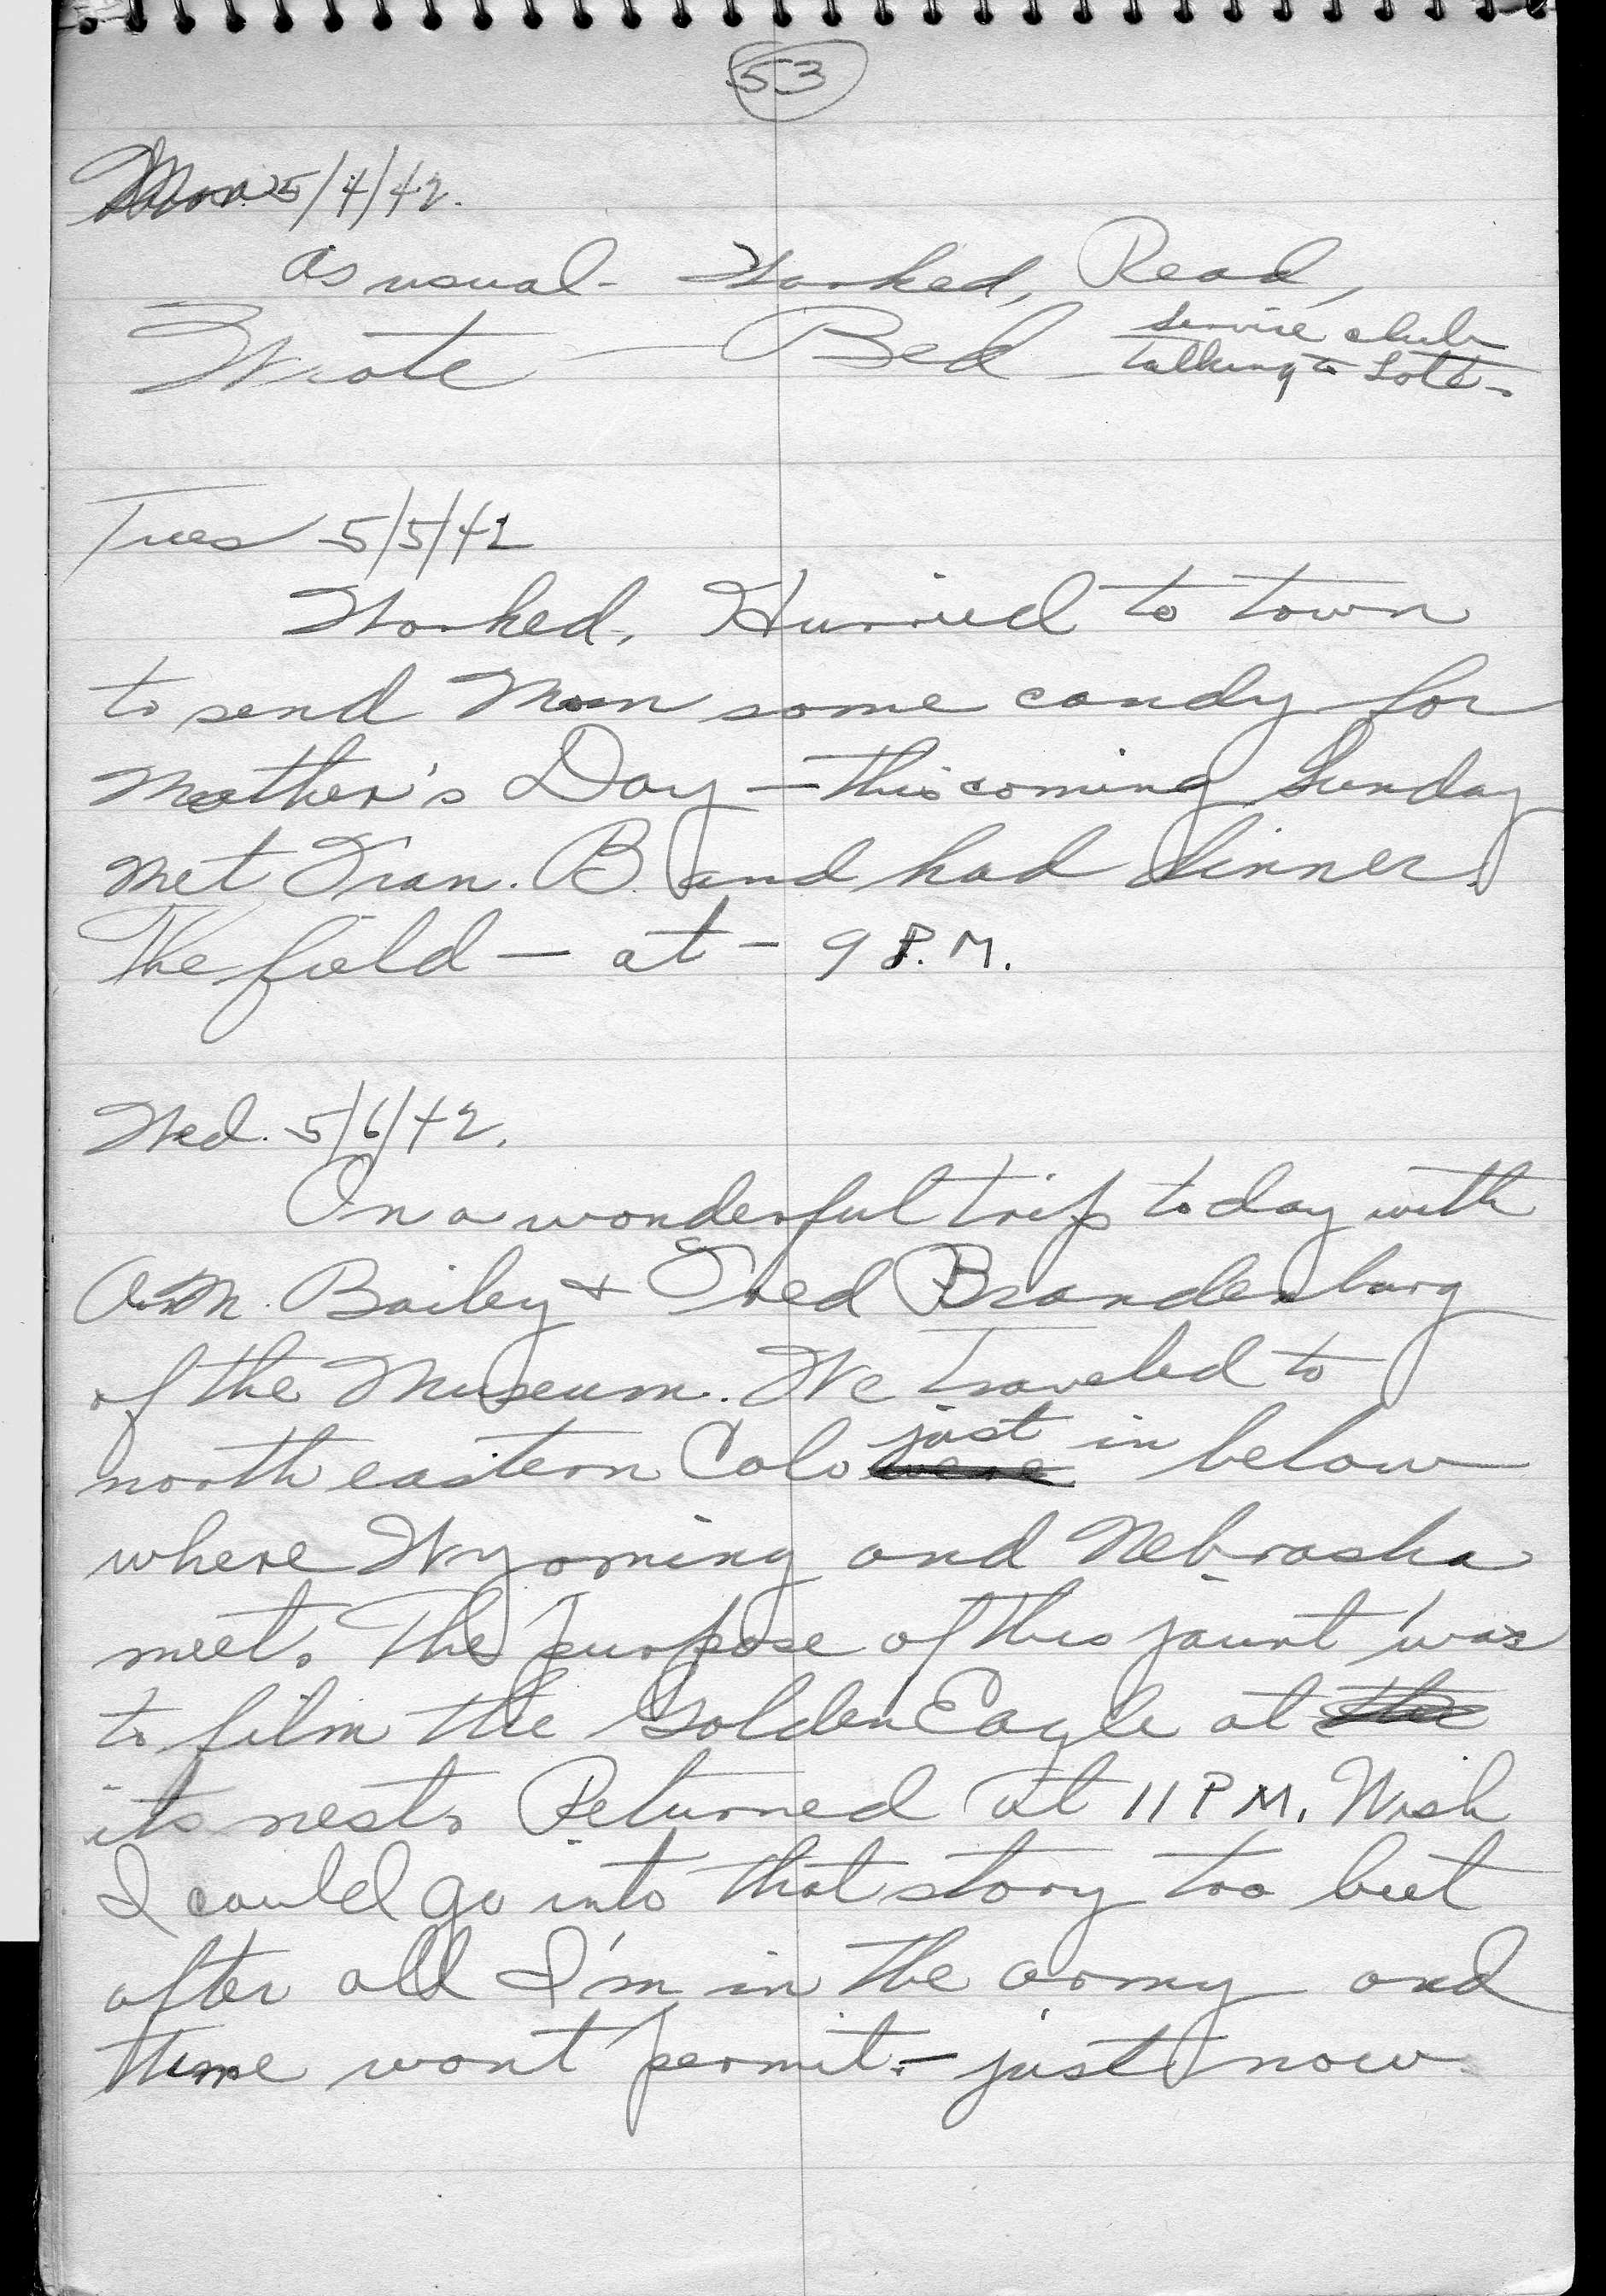 53
Mon. 5/4/42.
As usual - Worked, Read,
Wrote — Bed - service club
talking to Lott.
Tues 5/5/42
Worked, Hurried to town
to send Mom some candy for
Mother's Day — this coming Sunday
Met Fran. B. and had dinner.
The field — at - 9 P.M.
Wed. 5/6/42.
On a wonderful trip today with
A.M. Bailey + Fred Brandenburg
of the Museum. We traveled to
north eastern Colo just in below
where Wyoming and Nebraska
meet. The purpose of this jaunt was
to film the Golden Eagle at the
its nest. Returned at 11 PM. Wish
I could go into that story too but
after all I'm in the army and
time wont permit. — just now